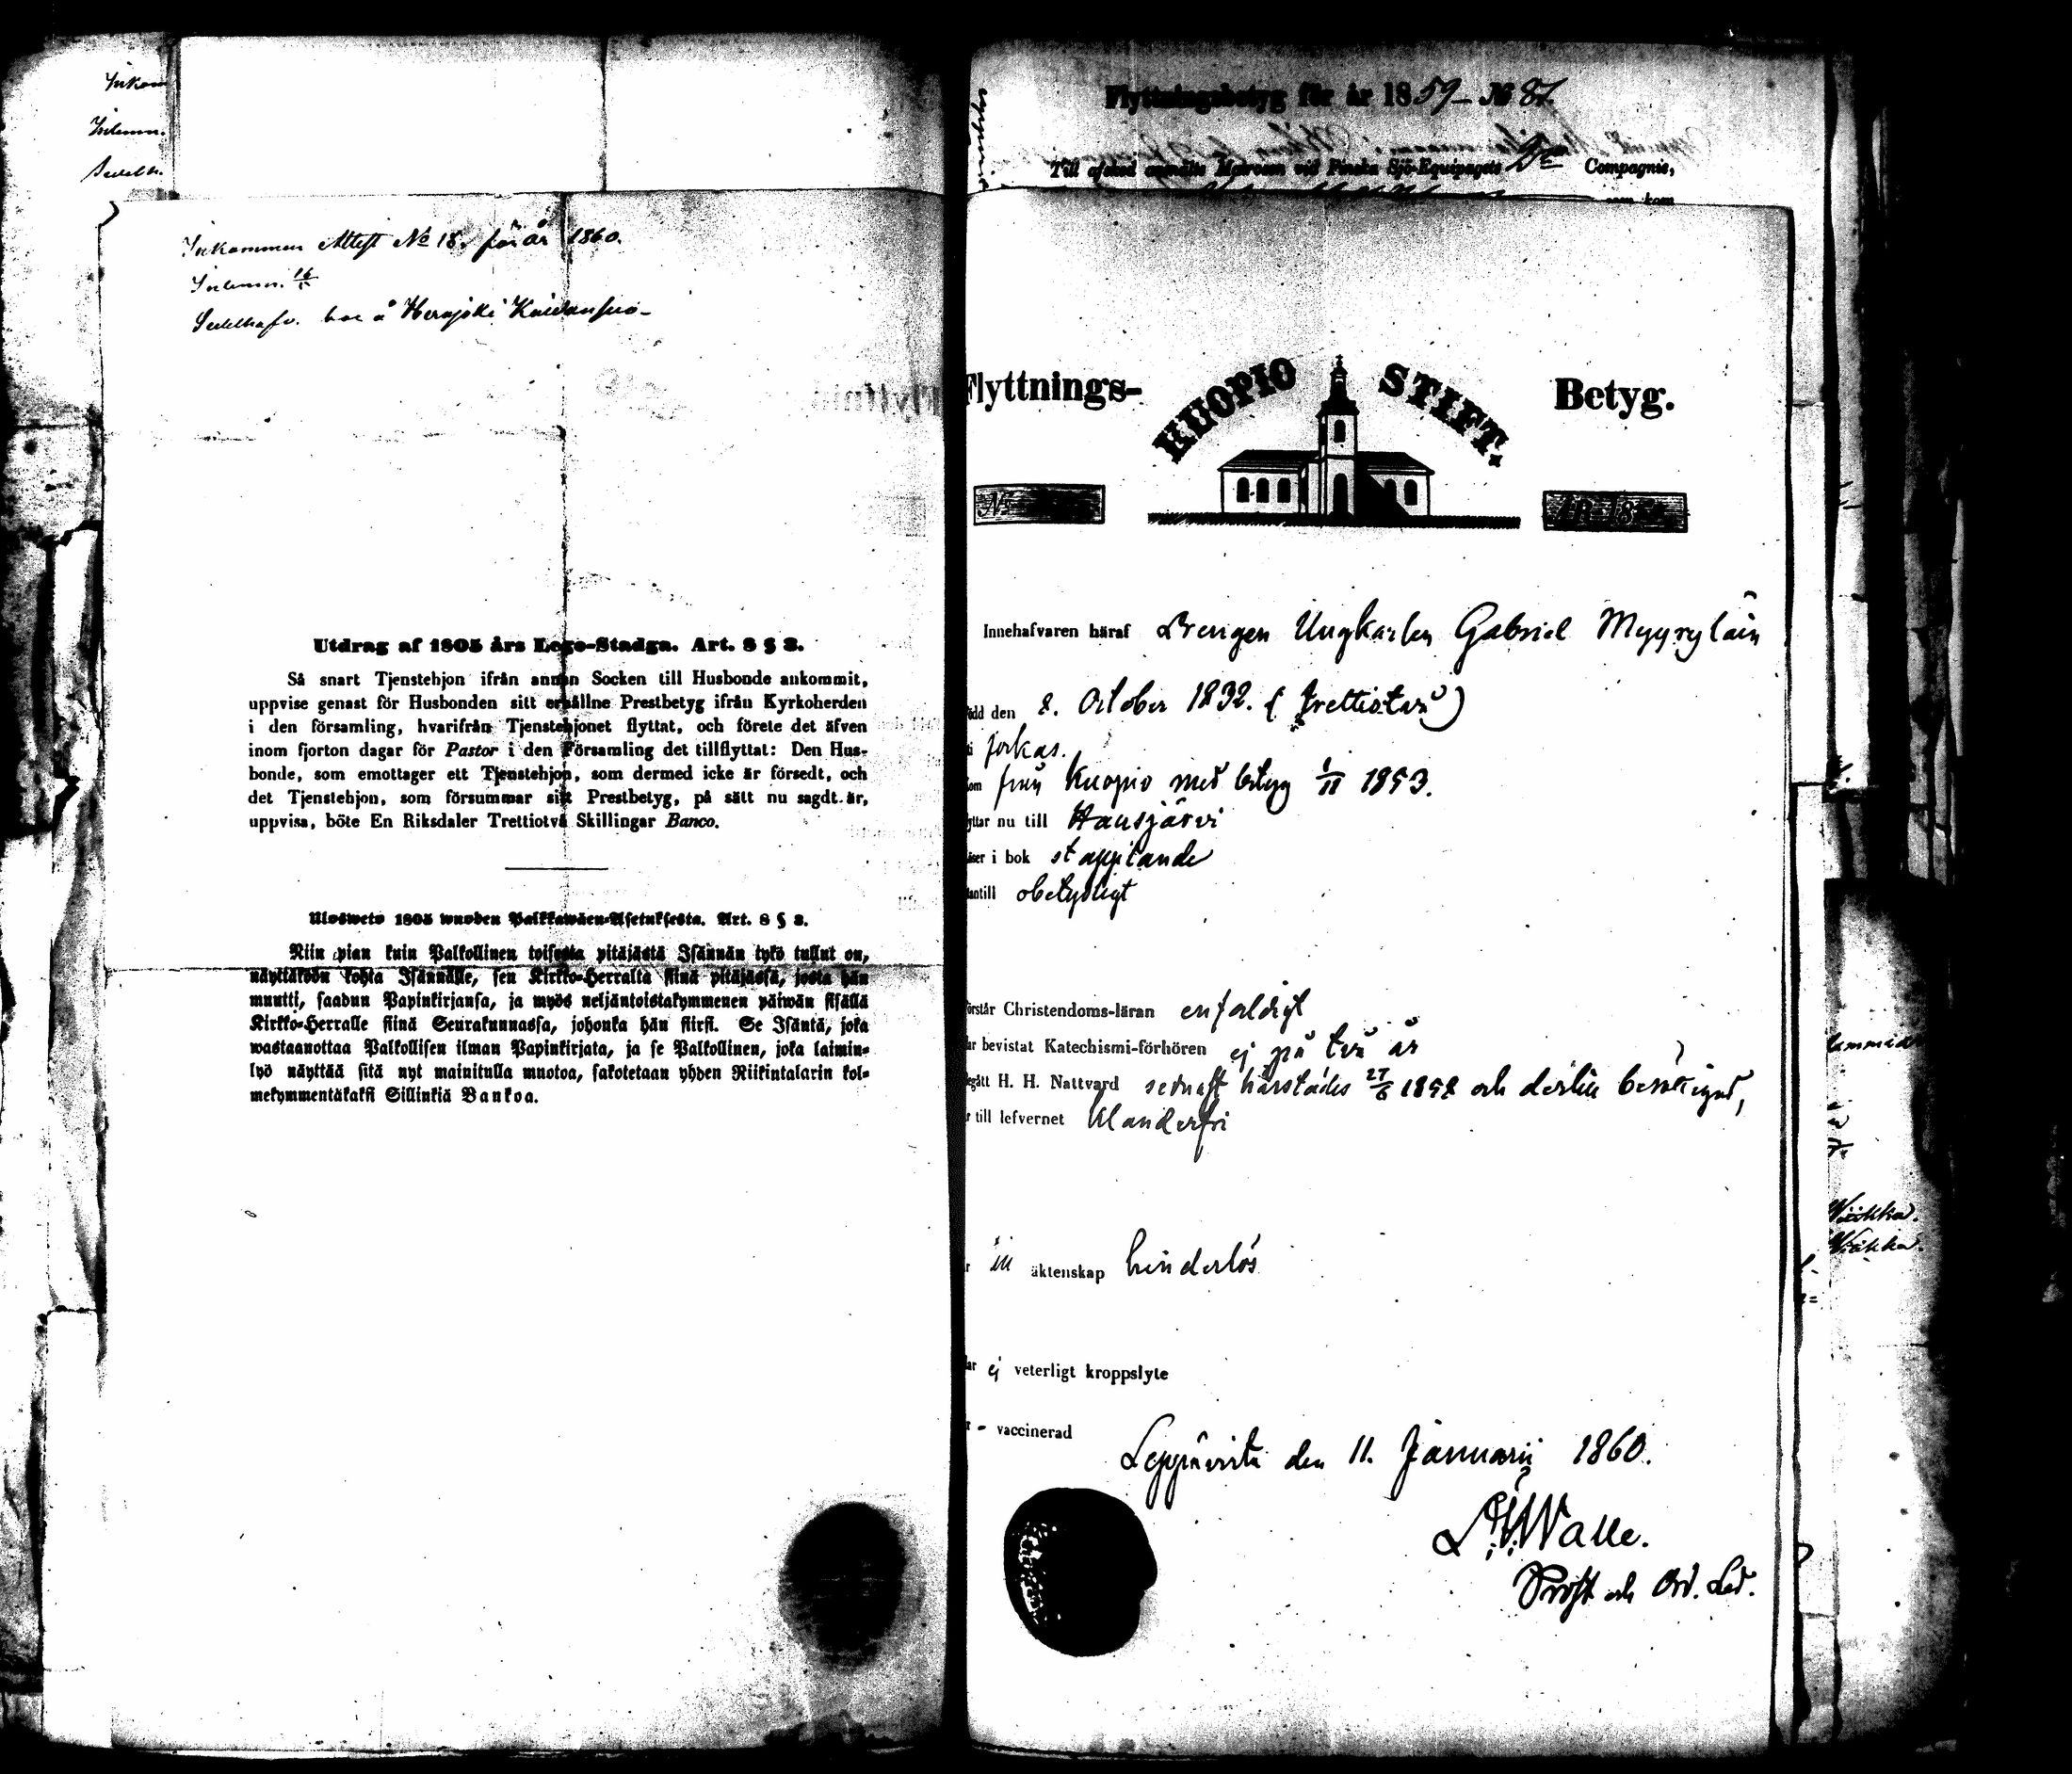 Inkom
Inlemn.
Sedelh.
Inkommen Attest No 18. för år 1860.
Inlemn. 16/1
Sedelhafv. bor å Herajoki Kaidansuo
Utdrag af 1805 års Lego-Stadga. Art. 8 § 3.
Så snart Tjenstehjon ifrån annan Socken till Husbonde ankommit,
uppvise genast för Husbonden sitt erhållne Prestbetyg ifrån Kyrkoherden
i den församling, hvarifrån Tjenstehjonet flyttat, och förete det äfven
inom fjorton dagar för Pastor i den Församling det tillflyttat: Den Hus-
bonde, som emottager ett Tjenstehjon, som dermed icke är försedt, och
det Tjenstehjon, som försummar sitt Prestbetyg, på sätt nu sagdt är,
uppvisa, böte En Riksdaler Trettiotvå Skillingar Banco.
Ulosweto 1805 wuoden Palkkawäen-Asetuksesta. Art. 8 § 3.
Niin pian kuin Palkollinen toisesta pitäjästä Isännän tykö tullut on,
näyttäköön kohta Isännälle, sen Kirkko-Herralta siinä pitäjässä, josta hän
muutti, saadun Papinkirjansa, ja myös neljäntoistakymmenen päiwän sisällä
Kirkko-Herralle siinä Seurakunnassa, johonka hän siirsi. Se Isäntä, joka
wastaanottaa Palkollisen ilman Papinkirjata, ja se Palkollinen, joka laimin-
lyö näyttää sitä nyt mainitulla muotoa, sakotetaan yhden Riikintalarin kol-
mekymmentäkaksi Sillinkiä Bankoa.
Flyttningsbetyg för år 1859 - No 87.
Till afsked anmälte Matrosen vid Finska Sjö-Equipagets Compagnie,
som kom
Flyttnings- KUOPIO STIFT. Betyg.
No ÅR 18
Innehafvaren häraf Drengen Ungkarlen Gabriel Myyryläin
född den 8. October 1832. (Trettiotvå)
i Jorkas.
kom från Kuopio med betyg 1/11 1853.
flyttar nu till Hausjärvi
läser i bok stappilande
utantill obetydligt
förstår Christendoms-läran enfaldigt
har bevistat Katechismi-förhören ej på två år
begått H. H. Nattvard sednast härstädes 27/6 1858 och dertill berättigad,
är till lefvernet klanderfri
är till äktenskap hinderlös
har ej veterligt kroppslyte
är - vaccinerad
Leppävirta den 11. Januarii 1860.
Walle.
Prost och Ord. Led.
Wiökka.
Wiökka.